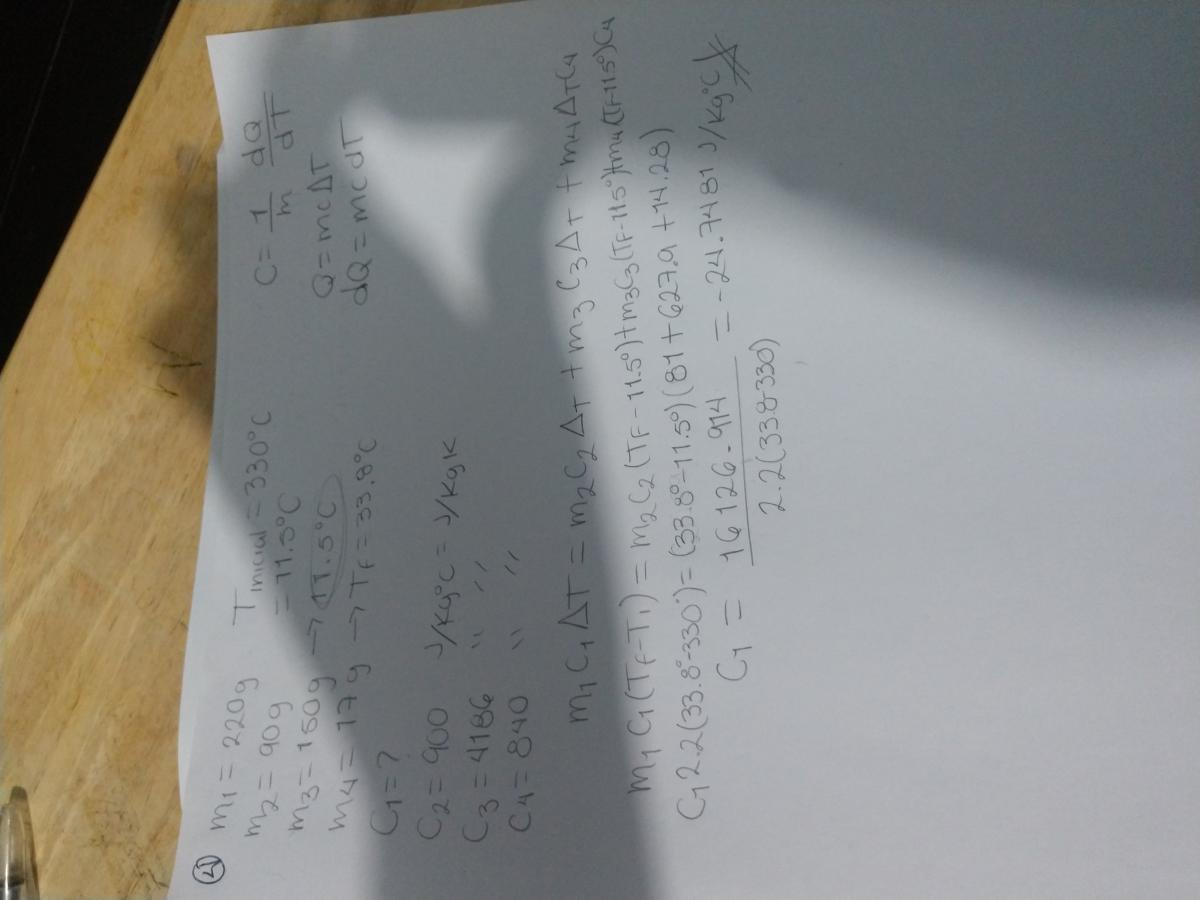 4)
m₁ = 220g   T inicial = 330°C
m₂ = 90g   = 11.5°C
m₃ = 150g → 11.5°C
m₄ = 17g → TF = 33.8°C
C₁ = ?
C₂ = 900 J/Kg°C = J/KgK
C₃ = 4186 " "
C₄ = 840 " "
C = 1/m dQ/dT
Q = mcΔT
dQ = mcdT
m₁C₁ΔT = m₂C₂ΔT + m₃C₃ΔT + m₄ΔTC₄
m₁C₁(TF-T₁) = m₂C₂(TF-11.5°)+m₃C₃(TF-11.5°)+m₄(TF-11.5°)C₄
C₁2.2(33.8°-330°) = (33.8°-11.5°)(81+627.9+14.28)
C₁ = 16126.914 / 2.2(33.8-330) = -24.7481 J/Kg°C